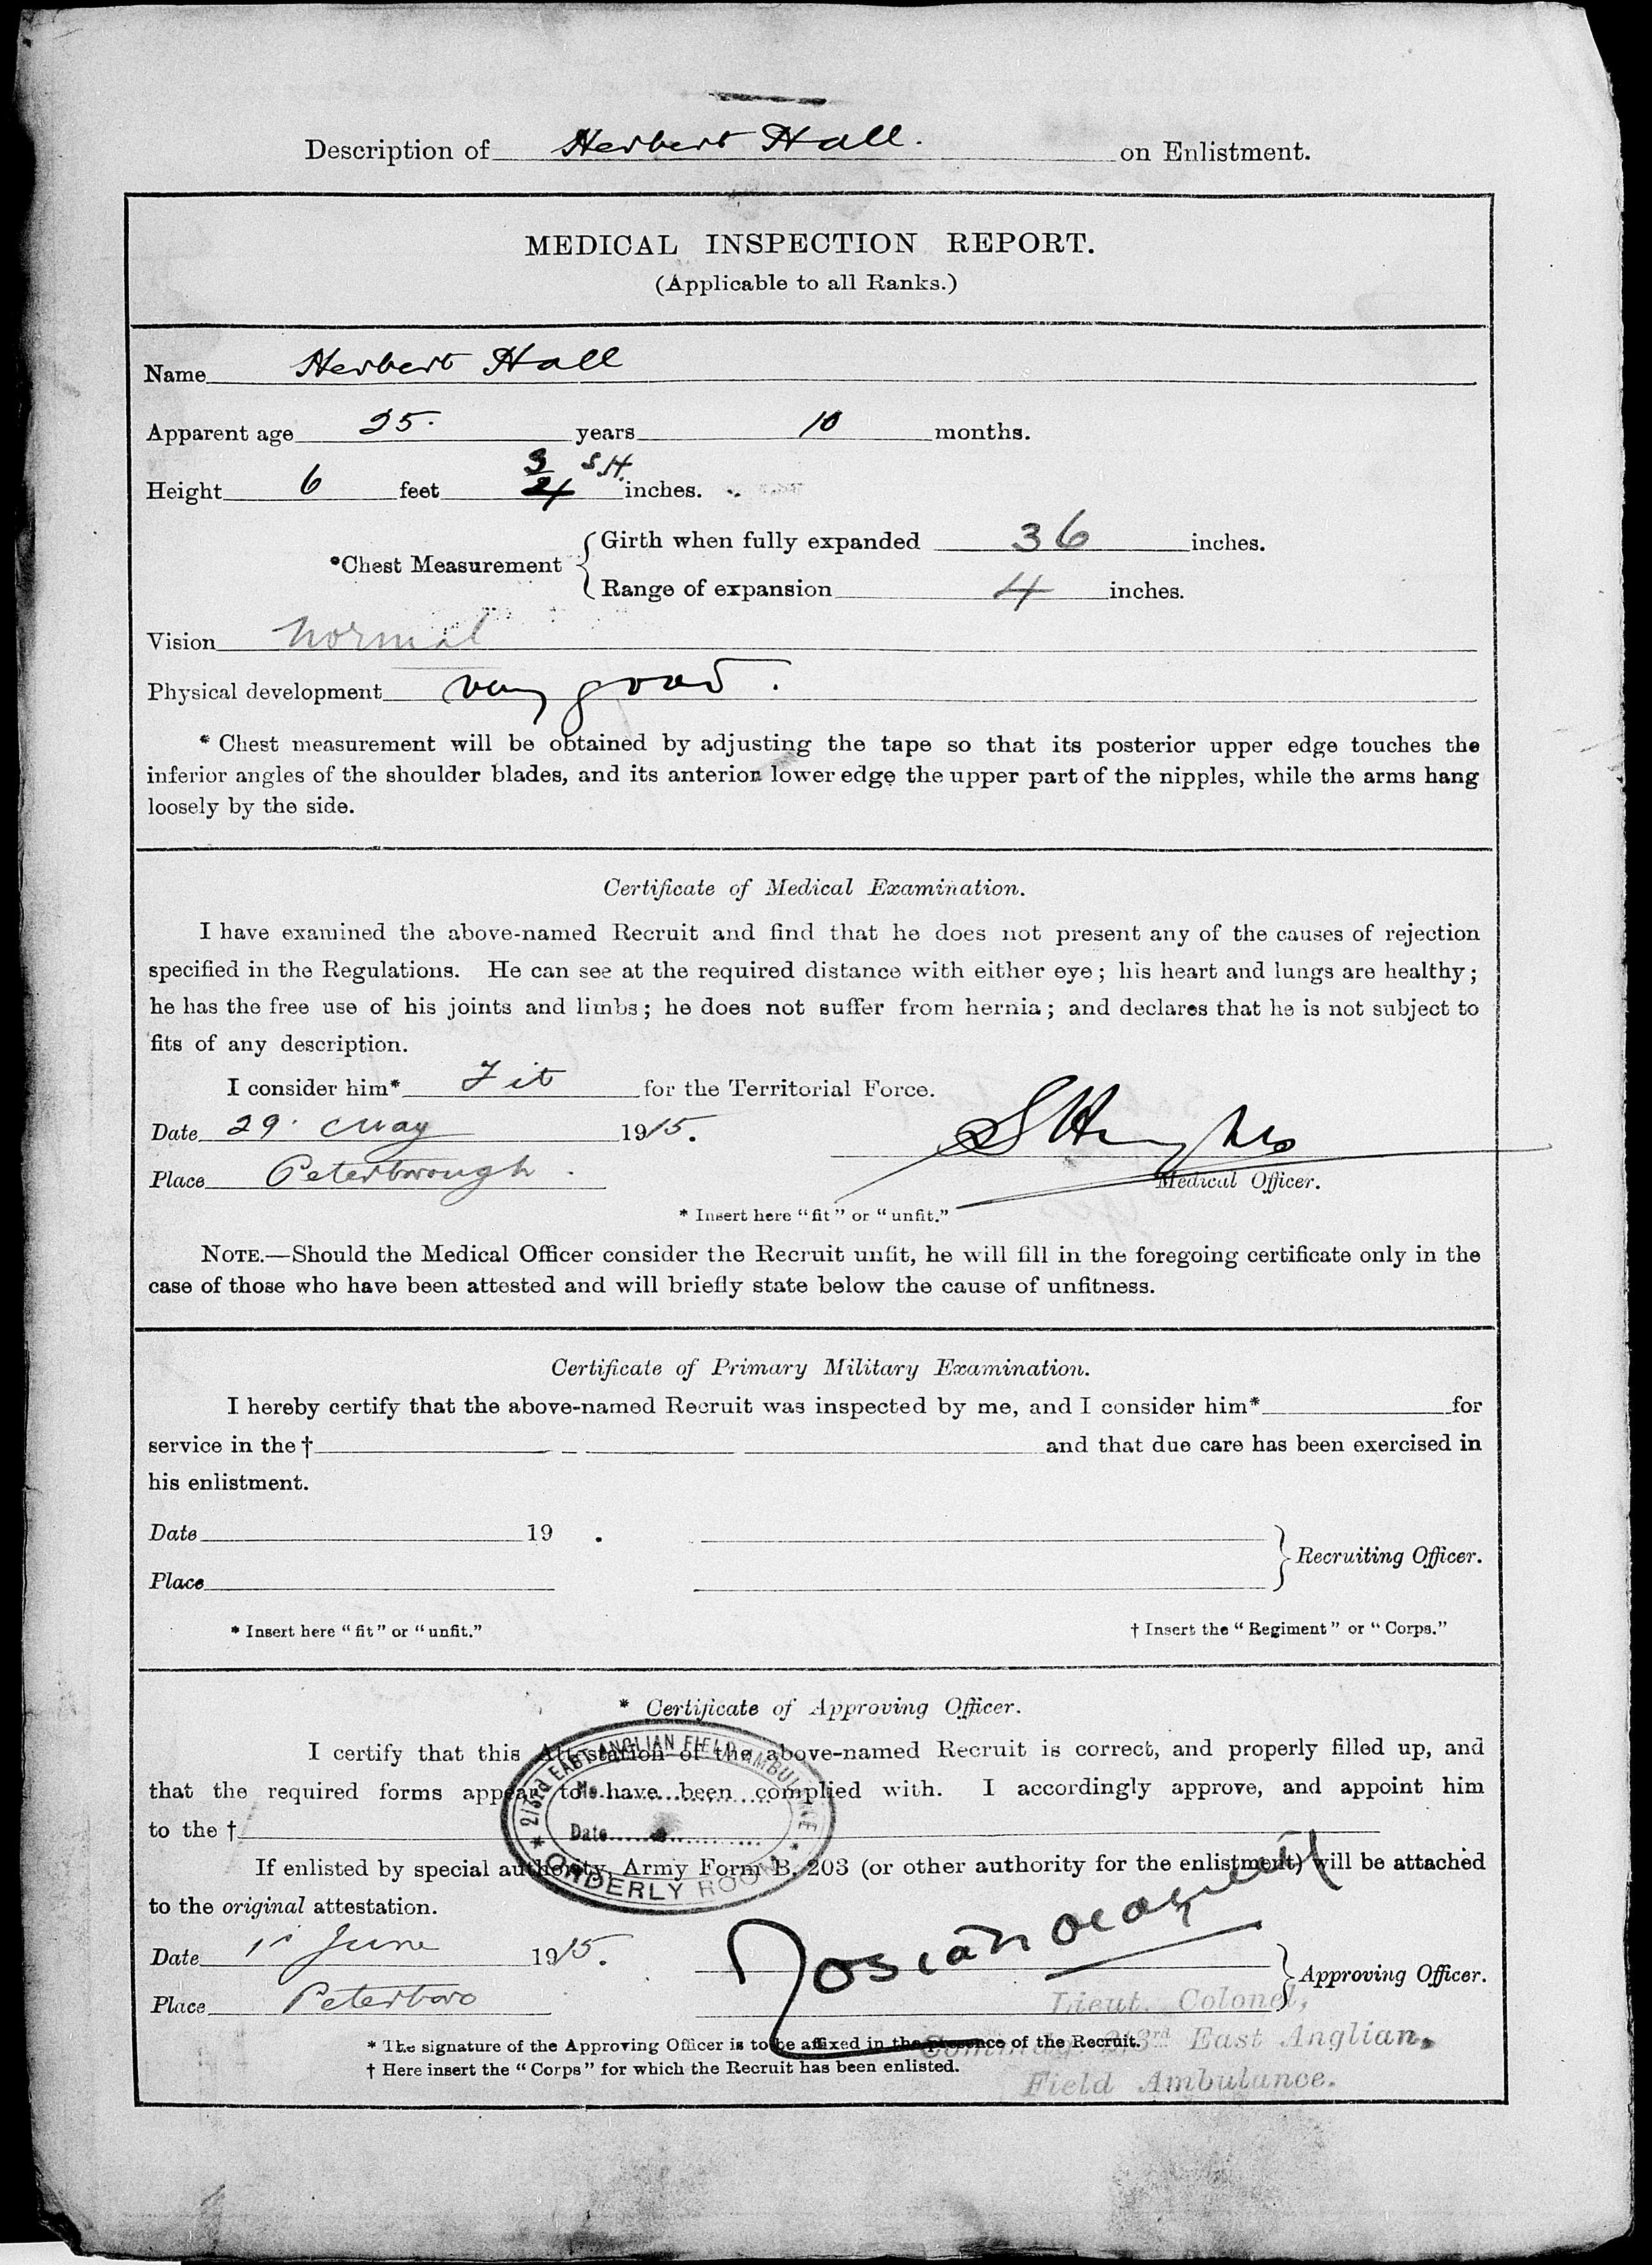 Description of Herbert Hall. on Enlistment.
MEDICAL INSPECTION REPORT.
(Applicable to all Ranks.)
Name Herbert Hall
Apparent age 25. years 10 months.
Height 6 feet 3/4 S.H. inches.
*Chest Measurement { Girth when fully expanded 36 inches.
Range of expansion 4 inches.
Vision Normal
Physical development very good.
* Chest measurement will be obtained by adjusting the tape so that its posterior upper edge touches the
inferior angles of the shoulder blades, and its anterior lower edge the upper part of the nipples, while the arms hang
loosely by the side.
Certificate of Medical Examination.
I have examined the above-named Recruit and find that he does not present any of the causes of rejection
specified in the Regulations. He can see at the required distance with either eye; his heart and lungs are healthy;
he has the free use of his joints and limbs; he does not suffer from hernia; and declares that he is not subject to
fits of any description.
I consider him* Fit for the Territorial Force.
Date 29. May 1915.
Place Peterborough.
Medical Officer.
* Insert here "fit" or "unfit."
NOTE.—Should the Medical Officer consider the Recruit unfit, he will fill in the foregoing certificate only in the
case of those who have been attested and will briefly state below the cause of unfitness.
Certificate of Primary Military Examination.
I hereby certify that the above-named Recruit was inspected by me, and I consider him* for
service in the † and that due care has been exercised in
his enlistment.
Date 19 .
Place } Recruiting Officer.
* Insert here "fit" or "unfit." † Insert the "Regiment" or "Corps."
* Certificate of Approving Officer.
I certify that this Attestation of the above-named Recruit is correct, and properly filled up, and
that the required forms appear to have been complied with. I accordingly approve, and appoint him
to the †
2/3rd EAST ANGLIAN FIELD AMBULANCE
No.
Date
* ORDERLY ROOM *
If enlisted by special authority, Army Form B. 203 (or other authority for the enlistment) will be attached
to the original attestation.
Date 1st June 1915.
Place Peterboro } Approving Officer.
Lieut. Colonel,
2/3rd East Anglian.
Field Ambulance.
* The signature of the Approving Officer is to be affixed in the presence of the Recruit.
† Here insert the "Corps" for which the Recruit has been enlisted.